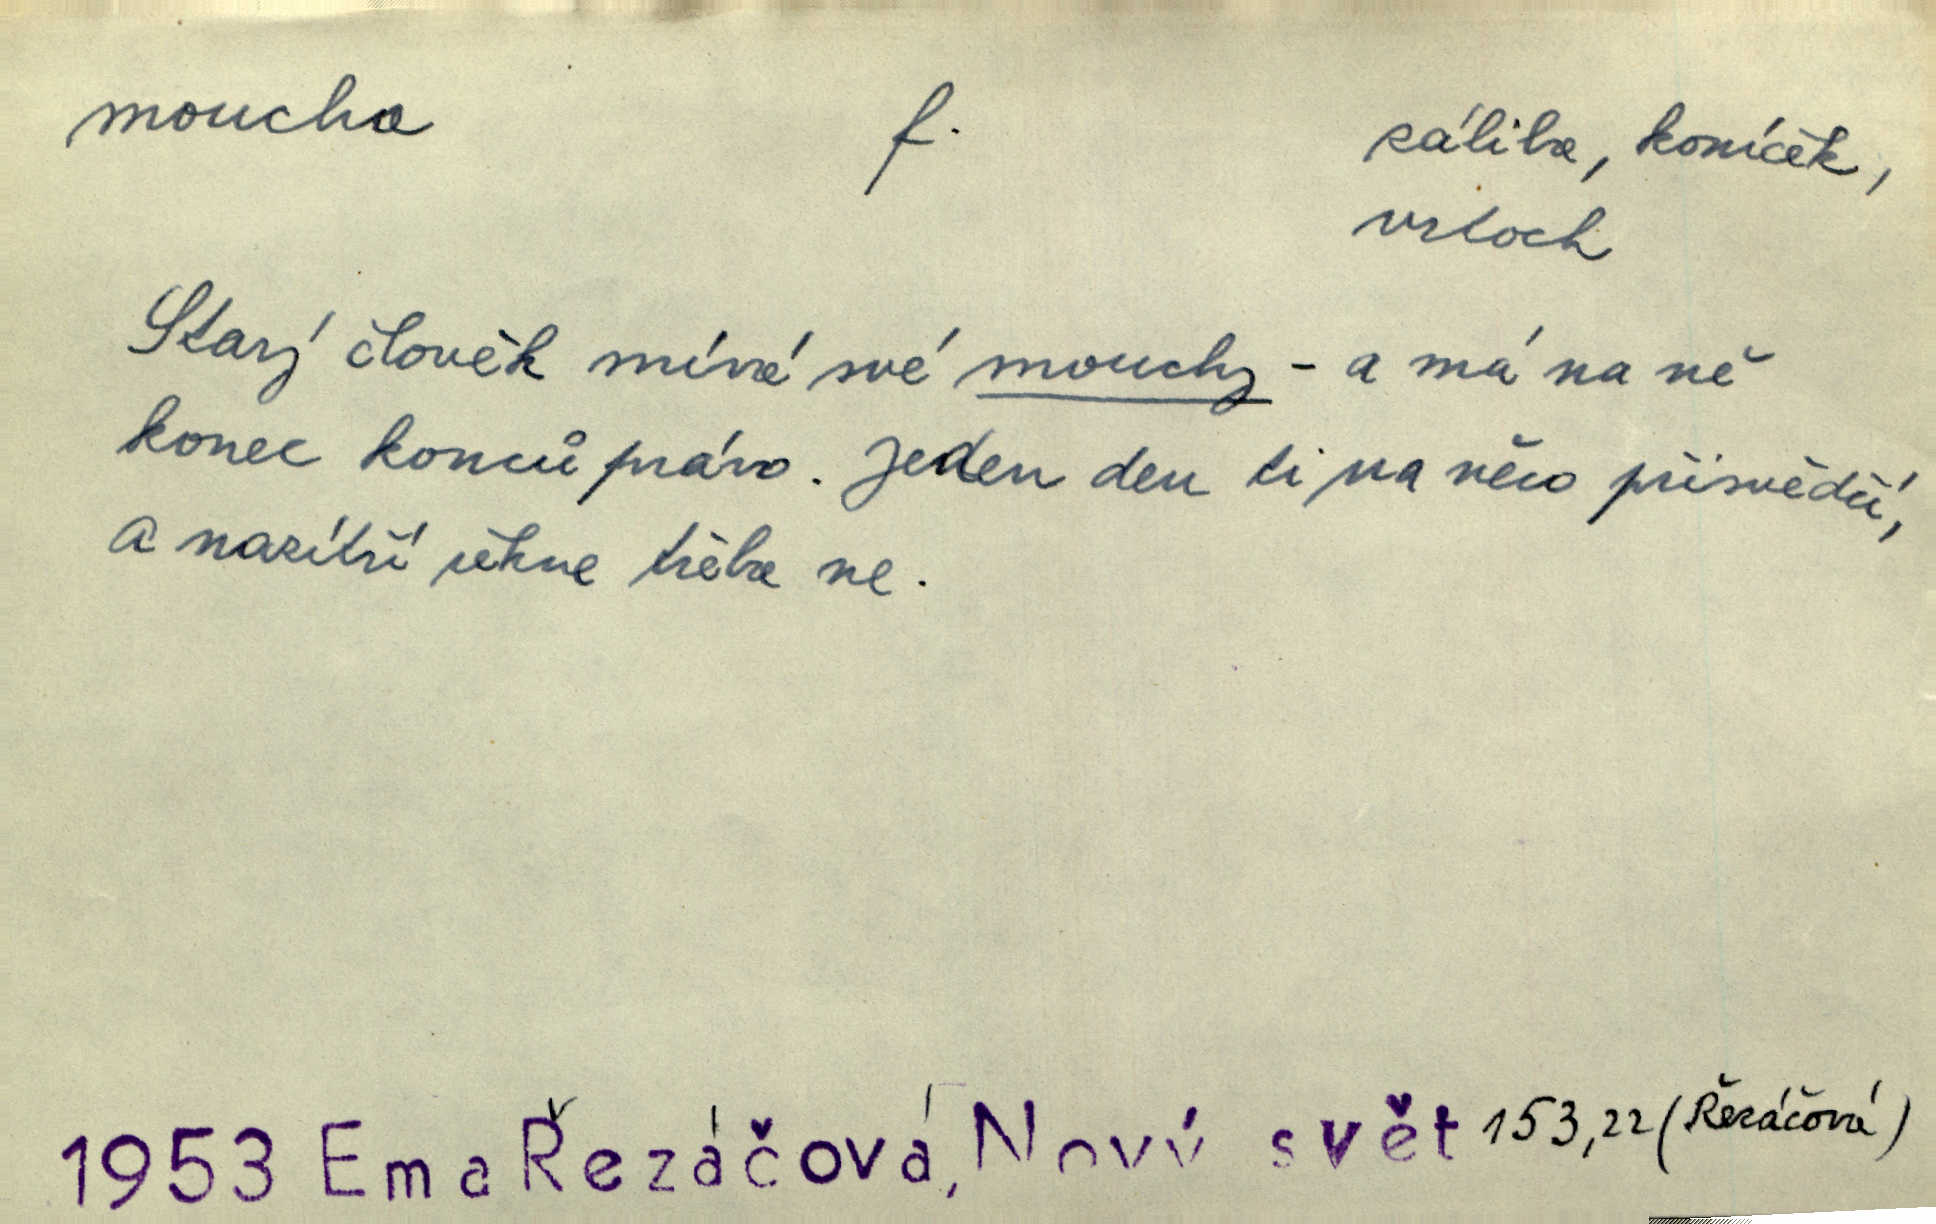 moucha f. záliba, koníček,
vrtoch
Starý člověk mívá své mouchy - a má na ně
konec konců právo. Jeden den ti na něco přisvědčí,
a nazítří řekne třeba ne.
1953 Ema Řezáčová, Nový svět 153,22 (Řezáčová)